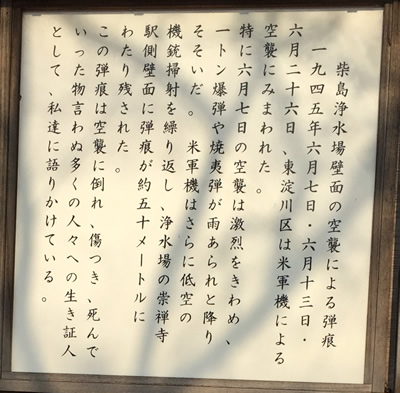 柴島浄水場壁面の空襲による弾痕
一九四五年六月七日・六月十三日・
六月二十六日、東淀川区は米軍機による
空襲にみまわれた。
特に六月七日の空襲は激烈をきわめ、
一トン爆弾や焼夷弾が雨あられと降り
そそいだ。米軍機はさらに低空の
機銃掃射を繰り返し、浄水場の崇禅寺
駅側壁面に弾痕が約五十メートルに
わたり残された。
この弾痕は空襲に倒れ、傷つき、死んで
いった物言わぬ多くの人々への生き証人
として、私達に語りかけている。